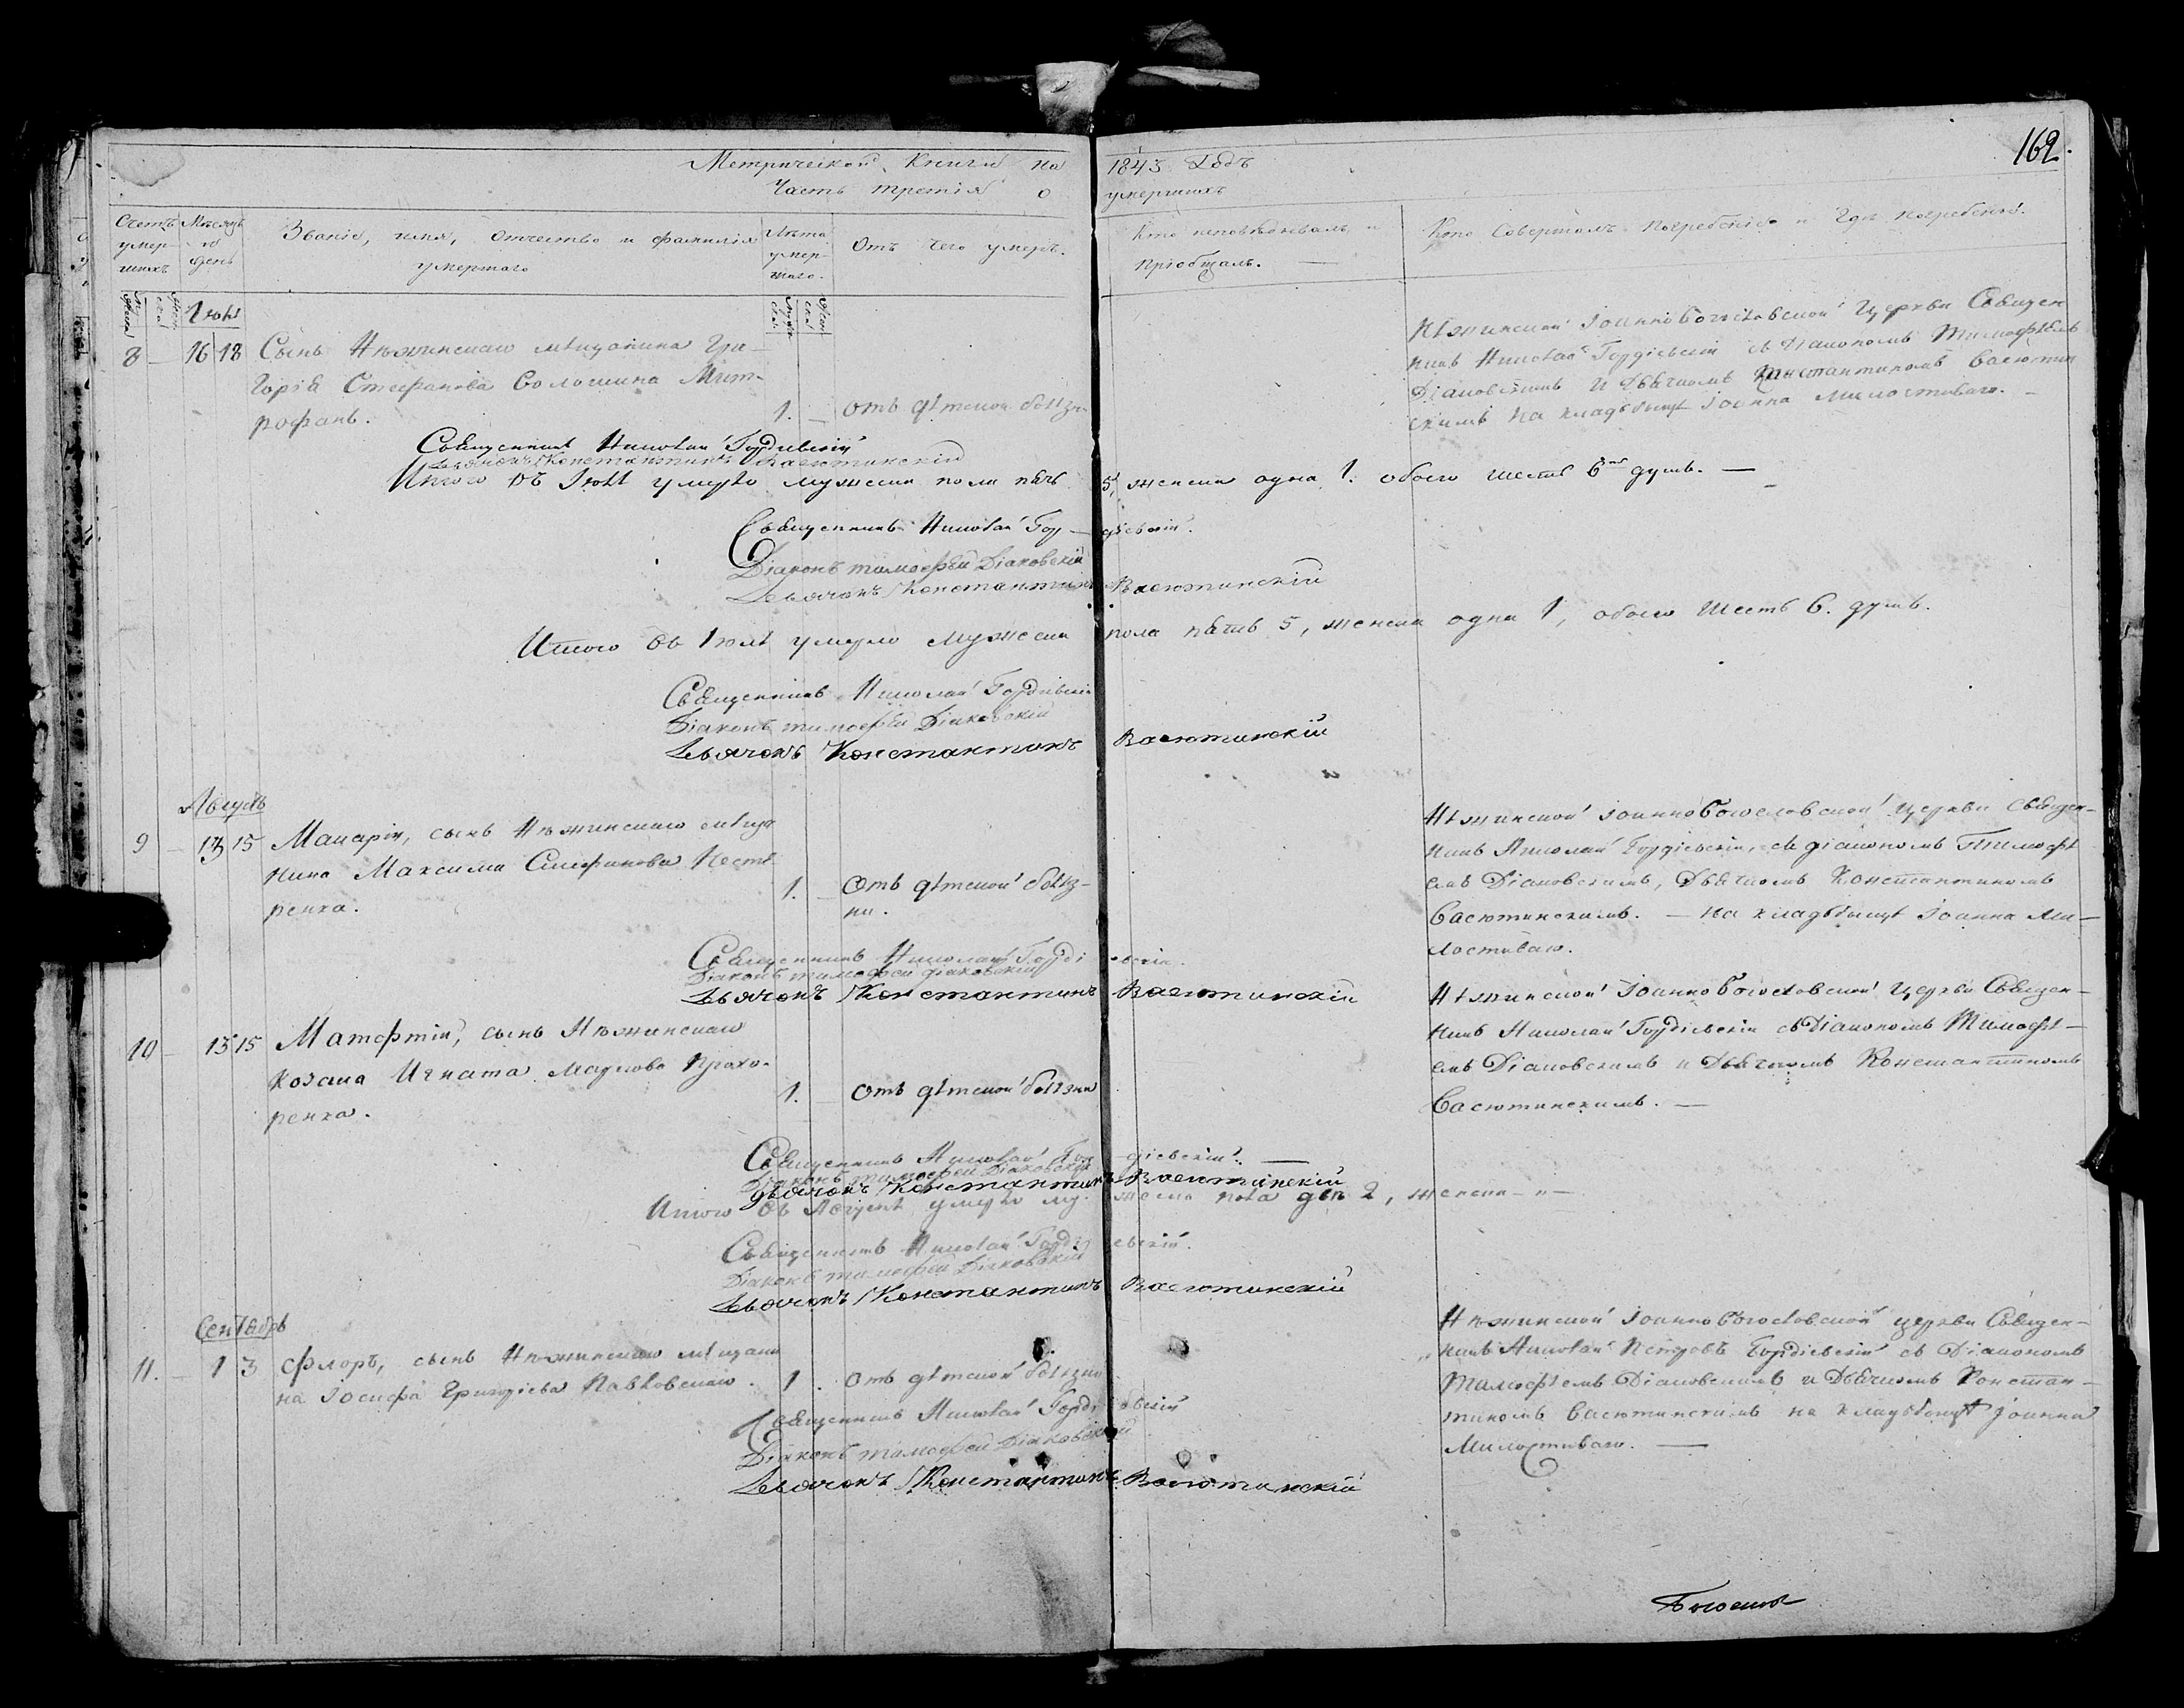 162.
Метрической Книги на 1843 Годъ
Часть третія о умершихъ
Счетъ умершихъ
Мѣсяцъ и день
Званіе, имя, отчество и фамилія умершаго
Лѣта умершаго.
Отъ чего умеръ.
Кто исповѣдывалъ и пріобщалъ. —
Кто совершалъ погребеніе и гдѣ погребены.
Іюль
8 — 16 18 Сынъ Нѣжинскаго мѣщанина Гри-
горія Стефанова Волошина Мит-
рофанъ.
1. — отъ дѣтской болѣзн.
Нѣжинской Іоанно Богословской Церкви Священ
никъ Николай Гордіевскій съ Діакономъ Тимофѣемъ
Діаковскимъ и Дьячкомъ Константиномъ Васютин
скимъ на кладбищѣ Іоанна Милостиваго. —
Священникъ Николай Гордіевскій
Дьячокъ Константинъ Васютинскій
Итого въ Іюлѣ умерло мужеска пола пять 5, женска одна 1. обоего шесть 6 душъ. —
Священникъ Николай Гордіевскій.
Діаконъ Тимофѣй Діаковскій
Дьячокъ Константинъ Васютинскій
Итого въ Іюлѣ умерло мужеска пола пять 5, женска одна 1, обоего шесть 6. душъ.
Священникъ Николай Гордіевскій
Діаконъ Тимофѣй Діаковскій
Дьячокъ Константинъ Васютинскій
Августъ
9 — 13 15 Макарій, сынъ Нѣжинскаго мѣща
нина Максима СтефановаНосте
ренка.
1. — Отъ дѣтской болѣз-
ни.
Нѣжинской Іоанно Богословской церкви Священ-
никъ Николай Гордіевскій, съ діакономъ Тимофѣ
емъ Діаковскимъ, Дьячкомъ Константиномъ
Васютинскимъ. — на кладбищѣ Іоанна Ми-
лостиваго.
Священникъ Николай Гордіевскій.
Діаконъ Тимофей Діаковскій
Дьячокъ Константинъ Васютинскій
10 — 13 15 Матофтій, сынъ Нѣжинскаго
козака Игната Маркова Прохо-
ренка.
1. — Отъ дѣтской болѣзни
Нѣжинской Іоанно Богословской Церкви Священ-
никъ Николай Гордіевскій съ Діакономъ Тимофѣ-
емъ Діаковскимъ и Дьячкомъ Константиномъ
Васютинскимъ. —
Священникъ Николай Гордіевскій. —
Діаконъ Тимофей Діаковскій
Дьячокъ Константинъ Васютинскій
Итого въ Августѣ умерло мужеска пола два 2, женска — „ —
Священникъ Николай Гордіевскій.
Діаконъ Тимофей Діаковскій
Дьячокъ Константинъ Васютинскій
Сентябрь
11. — 1 3 Флоръ, сынъ Нѣжинскаго мѣщани
на Іосифа Григоріева Павловскаго.
1. Отъ дѣтской болѣзни
Нѣжинской Іоанно Богословской церкви Священ-
никъ Николай Петровъ Гордіевскій съ Діакономъ
Тимофѣемъ Діаковскимъ и Дьячкомъ Констан-
тиномъ Васютинскимъ на кладбищѣ Іоанна
Милостиваго. —
Священникъ Николай Гордіевскій
Діаконъ Тимофей Діаковскій
Дьячокъ Константинъ Васютинскій